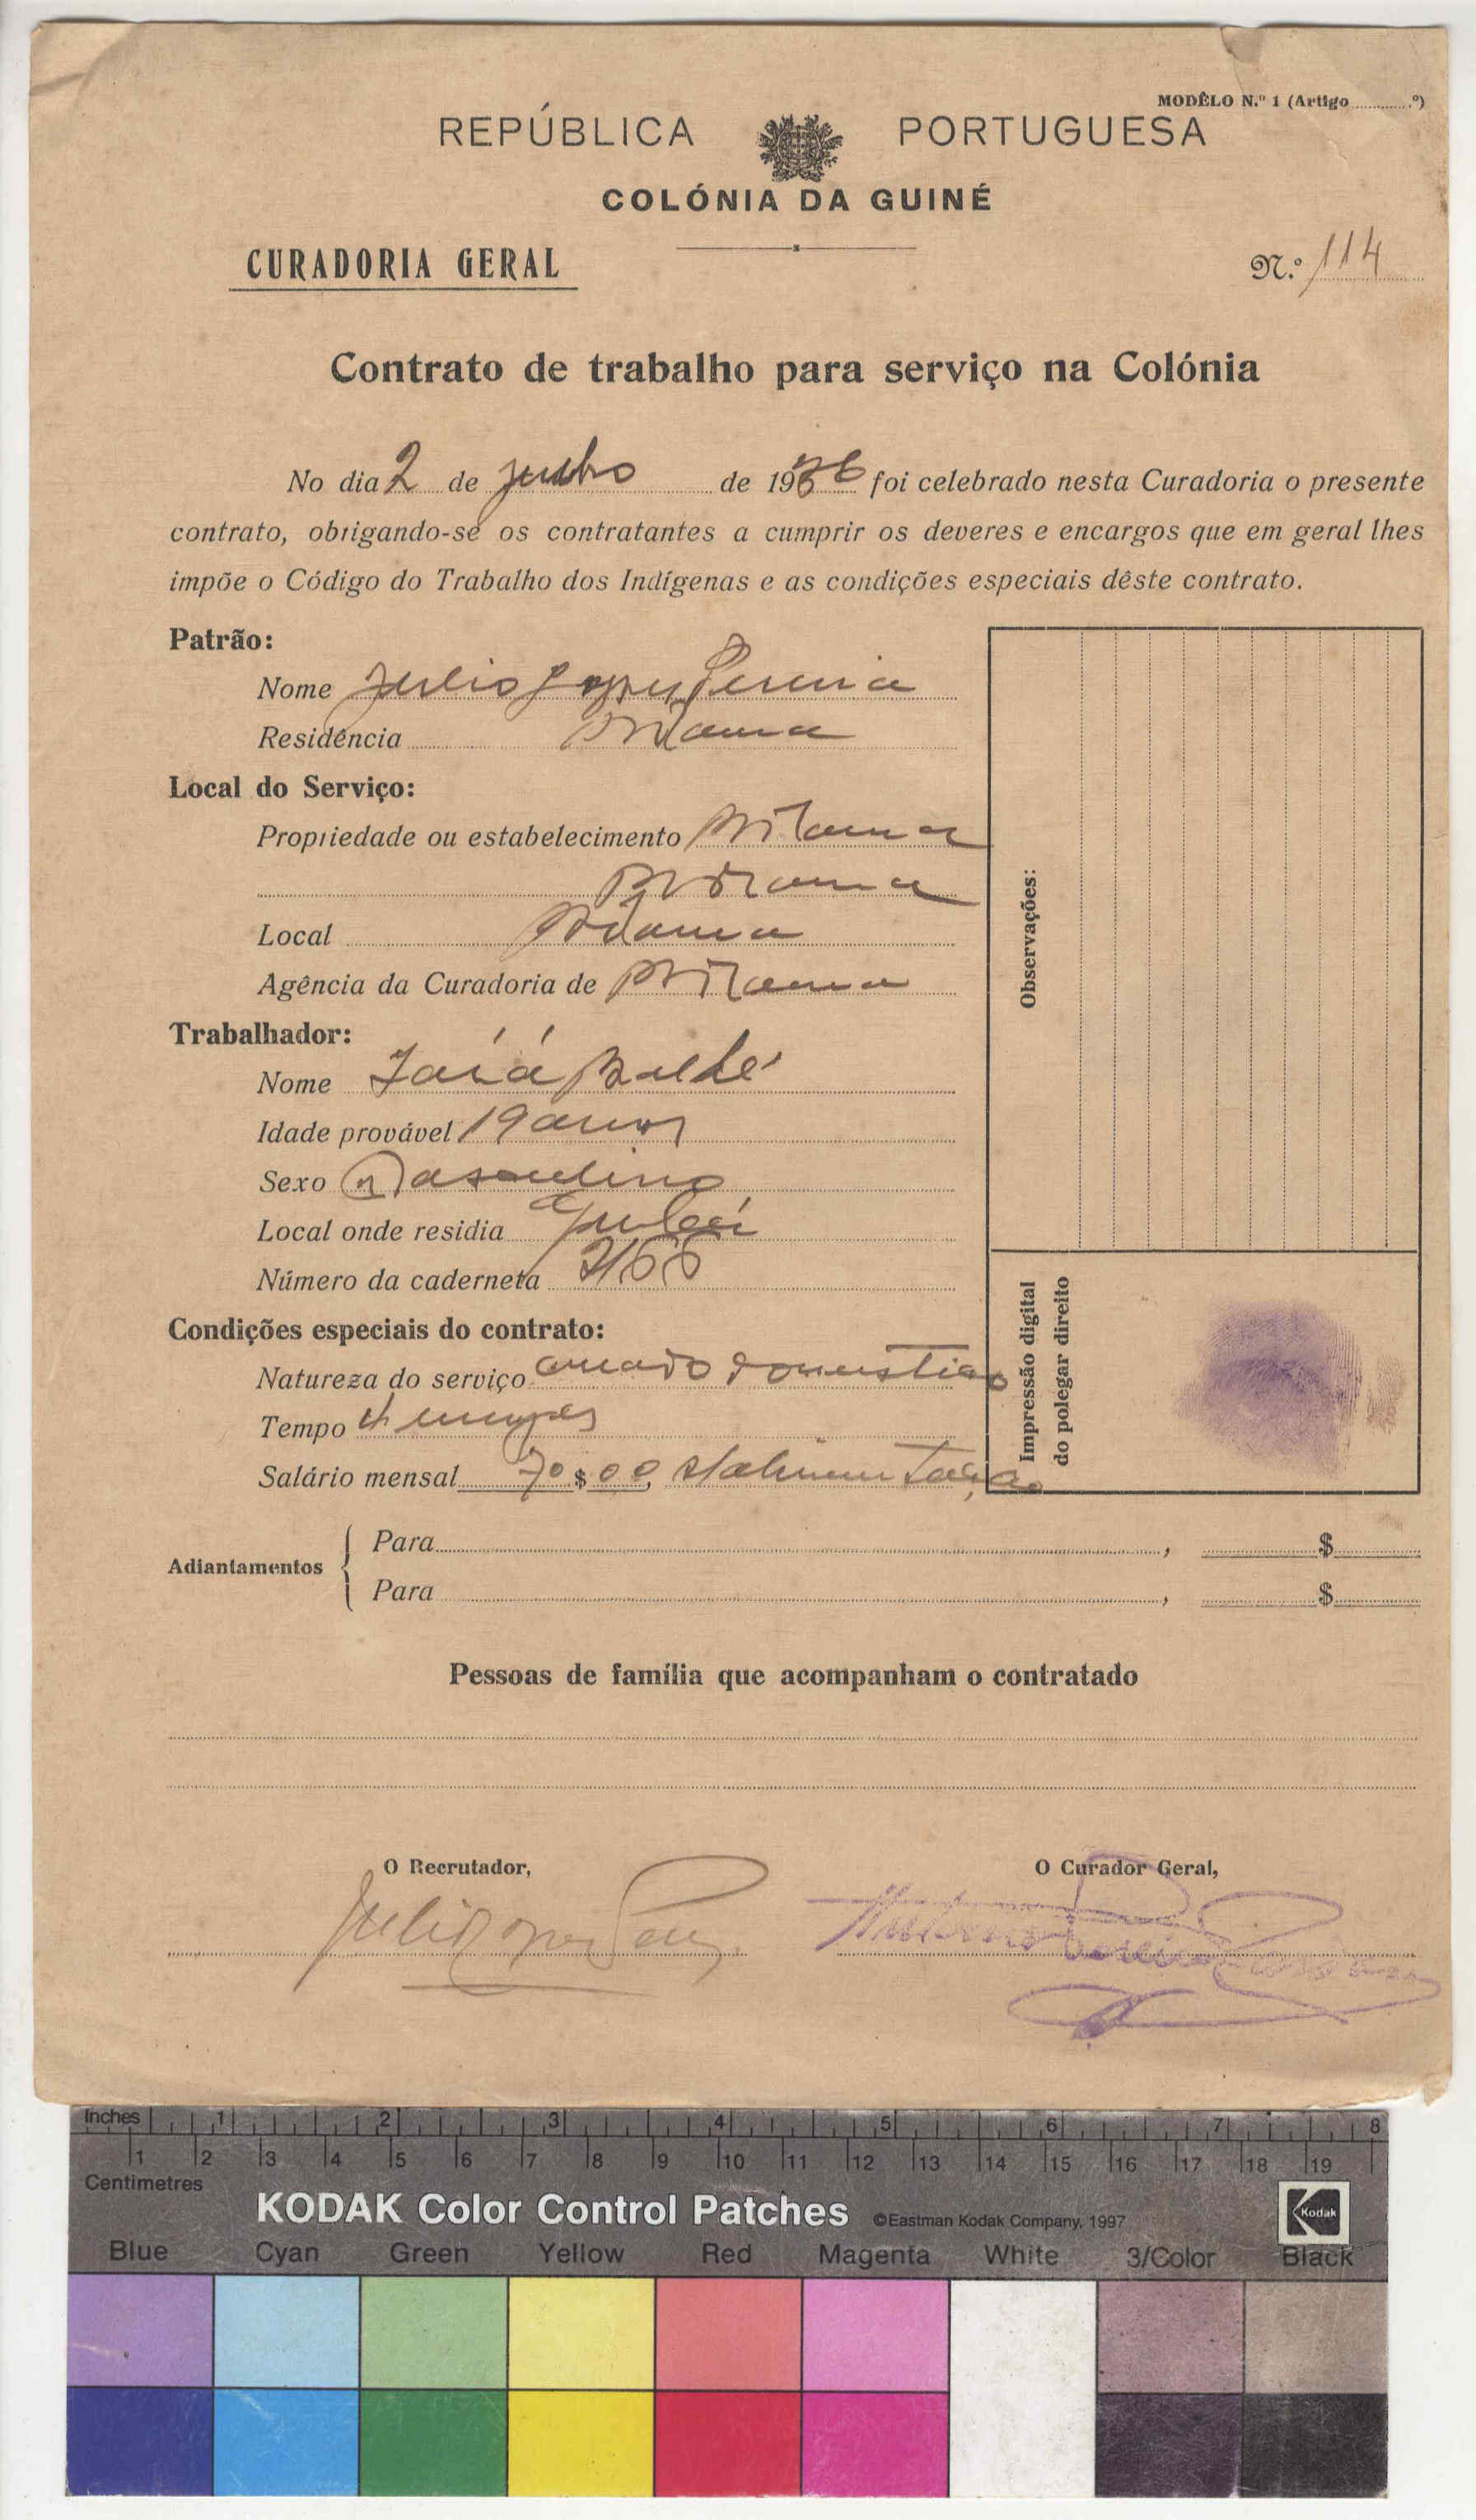 MODÊLO N.º 1 (Artigo.............º)
REPÚBLICA PORTUGUESA
COLÓNIA DA GUINÉ
CURADORIA GERAL
N.º 114
Contrato de trabalho para serviço na Colónia
No dia 2 de de 1936 foi celebrado nesta Curadoria o presente
contrato, obrigando-se os contratantes a cumprir os deveres e encargos que em geral lhes
impõe o Código do Trabalho dos Indígenas e as condições especiais dêste contrato.
Patrão:
Nome Julio Lopes Pereira
Residência Bolama
Local do Serviço:
Propriedade ou estabelecimento Bolama
Bolama
Local Bolama
Agência da Curadoria de Bolama
Trabalhador:
Nome Baldé
Idade provável 19 anos
Sexo Masculino
Local onde residia
Número da caderneta
Condições especiais do contrato:
Natureza do serviço criado domestico
Tempo mezes
Salário mensal 70$00, alimentação
Observações:
Impressão digital
do polegar direito
Adiantamentos
Para , $
Para , $
Pessoas de família que acompanham o contratado
O Recrutador,
O Curador Geral,
Julio Lopes Pereira
Inches 1 2 3 4 5 6 7 8
1 2 3 4 5 6 7 8 9 10 11 12 13 14 15 16 17 18 19
Centimetres
KODAK Color Control Patches ©Eastman Kodak Company, 1997 Kodak
Blue Cyan Green Yellow Red Magenta White 3/Color Black